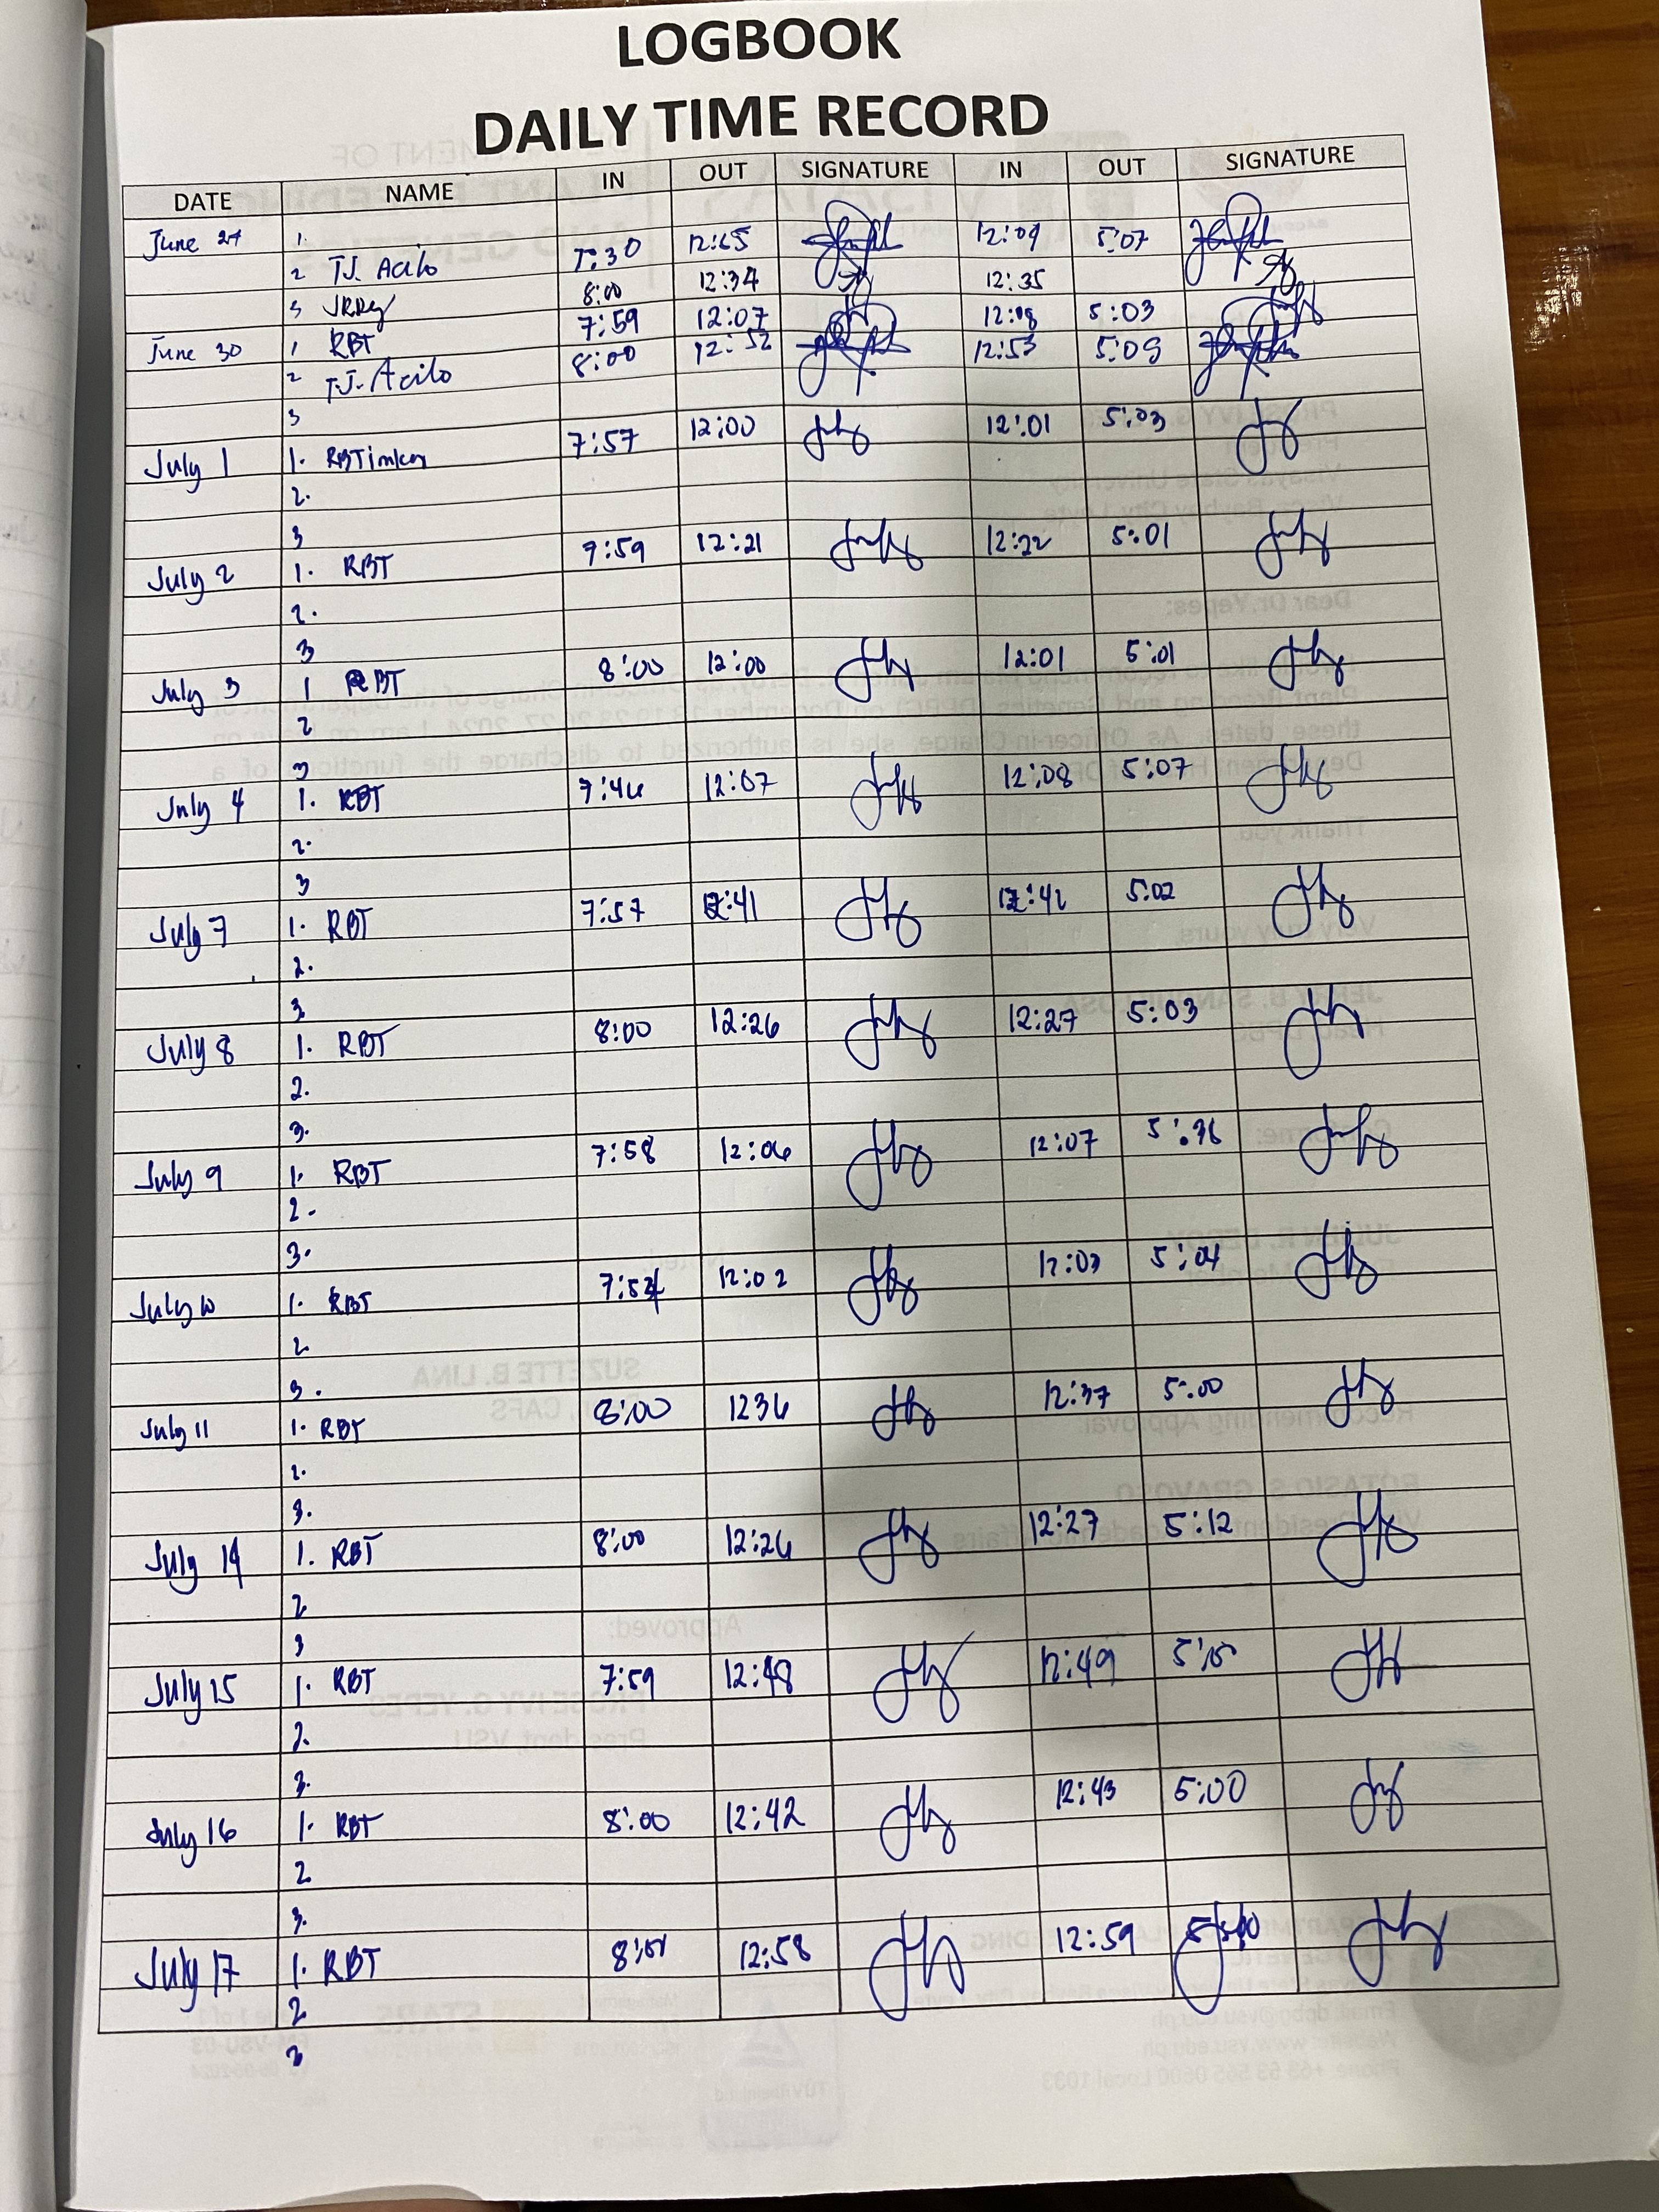 LOGBOOK
DAILY TIME RECORD
DATE NAME IN OUT SIGNATURE IN OUT SIGNATURE
June 27 1.
2 TJ. Acilo 7:30 12:09 5:07
3 8:00 12:34 12:35
June 30 1 RBT 7:59 12:07 12:08 5:03
2 TJ. Acilo 8:00 12:52 12:53 5:09
3
July 1 1. RBTimker 7:57 12:00 12:01 5:03
2.
3
July 2 1. RBT 7:59 12:21 12:22 5:01
2.
3
July 3 1 RBT 8:00 12:00 12:01 5:01
2
3
July 4 1. RBT 7:46 12:07 12:08 5:07
2.
3
July 7 1. RBT 7:57 12:41 12:42 5:02
2.
3
July 8 1. RBT 8:00 12:26 12:27 5:03
2.
3.
July 9 1. RBT 7:58 12:06 12:07
2.
3.
July 10 1. RBT 12:02 12:03 5:04
2
3.
July 11 1. RBT 8:00 1236 12:37 5:00
2.
3.
July 14 1. RBT 8:00 12:26 12:27 5:12
2
3
July 15 1. RBT 7:59 12:48 12:49
2.
3.
July 16 1. RBT 8:00 12:42 12:43 5:00
2
3.
July 17 1. RBT 12:58 12:59
2
3